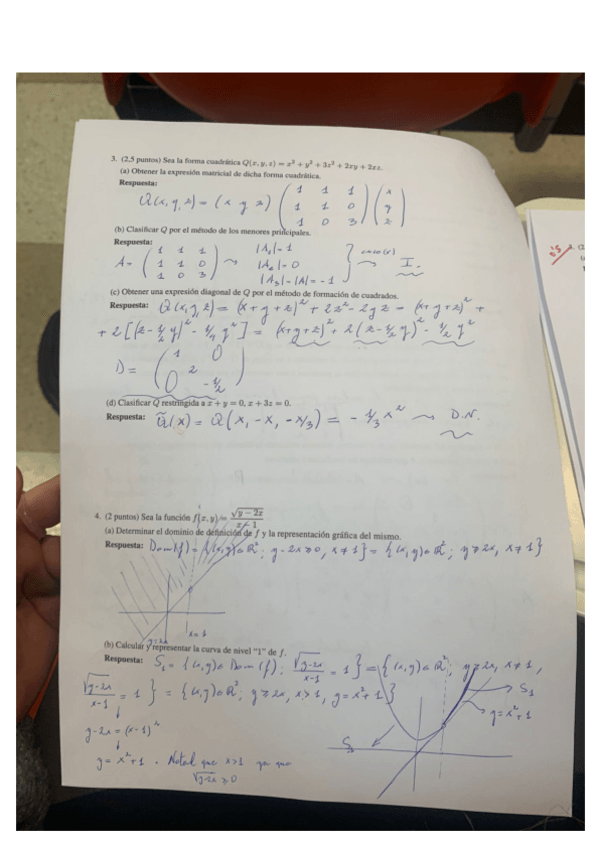 3. (2,5 puntos) Sea la forma cuadrática Q(x, y, z) = x² + y² + 3z² + 2xy + 2xz.
(a) Obtener la expresión matricial de dicha forma cuadrática.
Respuesta:
Q(x,y,z) = (x y z) (1 1 1 / 1 1 0 / 1 0 3) (x / y / z)
(b) Clasificar Q por el método de los menores principales.
Respuesta:
A = (1 1 1 / 1 1 0 / 1 0 3) ⇝ |A₁| = 1
|A₂| = 0
|A₃| = |A| = -1 } ⇝ I.
(c) Obtener una expresión diagonal de Q por el método de formación de cuadrados.
Respuesta: Q(x,y,z) = (x+y+z)² + 2z² - 2yz = (x+y+z)² +
+ 2[(z - 1/2 y)² - 1/4 y²] = (x+y+z)² + 2(z - 1/2 y)² - 1/2 y²
D = (1 0 / 2 / 0 -1/2)
(d) Clasificar Q restringida a x + y = 0, x + 3z = 0.
Respuesta: Q̃(x) = Q(x, -x, -x/3) = - 1/3 x² ⇝ D.N.
4. (2 puntos) Sea la función f(x, y) = √(y − 2x) / (x − 1)
(a) Determinar el dominio de definición de f y la representación gráfica del mismo.
Respuesta: Dom(f) = {(x,y)∈ℝ²; y-2x≥0, x≠1} = {(x,y)∈ℝ²; y≥2x, x≠1}
x=1
y=2x
(b) Calcular y representar la curva de nivel "1" de f.
Respuesta: S₁ = {(x,y)∈Dom(f); √(y-2x)/(x-1) = 1} = {(x,y)∈ℝ²; y≥2x, x≠1,
√(y-2x)/(x-1) = 1} = {(x,y)∈ℝ²; y≥2x, x>1, y=x²+1}
S₁
y=x²+1
y-2x = (x-1)²
y = x²+1. Notad que x>1 ya que
√(y-2x) ≥ 0